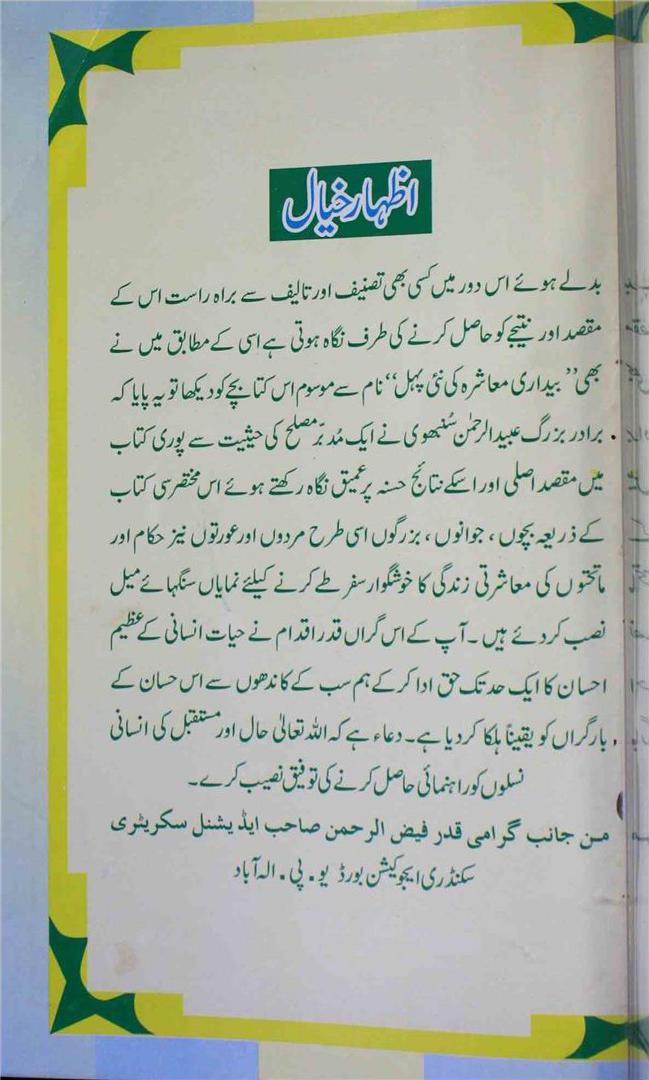 اظہار خیال
بدلے ہوئے اس دور میں کسی بھی تصنیف اور تالیف سے براہ راست اس کے
مقصد اور نتیجے کو حاصل کرنے کی طرف نگاہ ہوتی ہے اسی کے مطابق میں نے
بھی ’’بیداری معاشرہ کی نئی پہل‘‘ نام سے موسوم اس کتابچے کو دیکھا تو یہ پایا کہ
برادر بزرگ عبید الرحمٰن سُنبھوی نے ایک مُدبّر مصلح کی حیثیت سے پوری کتاب
میں مقصد اصلی اور اسکے نتائج حسنہ پر عمیق نگاہ رکھتے ہوئے اس مختصر سی کتاب
کے ذریعہ بچوں ، جوانوں ، بزرگوں اسی طرح مردوں اور عورتوں نیز حکام اور
ماتحتوں کی معاشرتی زندگی کا خوشگوار سفر طے کرنے کیلئے نمایاں سنگہائے میل
نصب کر دئے ہیں ۔ آپ کے اس گراں قدر اقدام نے حیات انسانی کے عظیم
احسان کا ایک حد تک حق ادا کر کے ہم سب کے کاندھوں سے اس حسان کے
بار گراں کو یقیناً ہلکا کر دیا ہے ۔ دعاء ہے کہ اللہ تعالیٰ حال اور مستقبل کی انسانی
نسلوں کو راہنمائی حاصل کرنے کی توفیق نصیب کرے ۔
من جانب گرامی قدر فیض الرحمن صاحب ایڈیشنل سکریٹری
سکنڈری ایجوکیشن بورڈ یو . پی . الہ آباد